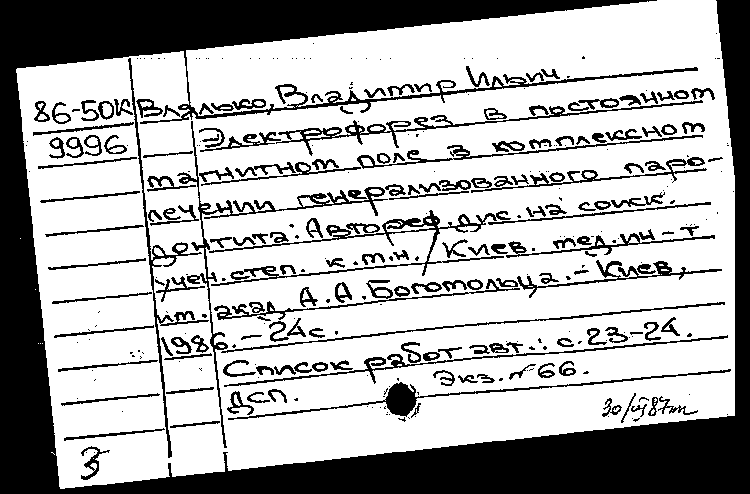 86-50К Влялько, Владимир Ильич.
9996 Электрофорез в постоянном
магнитном поле в комплексном
лечении генерализованного паро-
донтита: Автореф. дис. на соиск.
учен. степ. к.м.н. / Киев. мед. ин-т
им. акад. А.А. Богомольца. - Киев,
1986. - 24 с.
Список работ авт.: с. 23-24.
Экз. № 66.
ДСП.
3